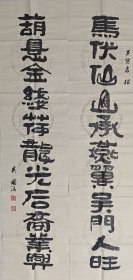 馬伏仙山承燕翼吳門人旺
葫悬金綫龍光后裔業興